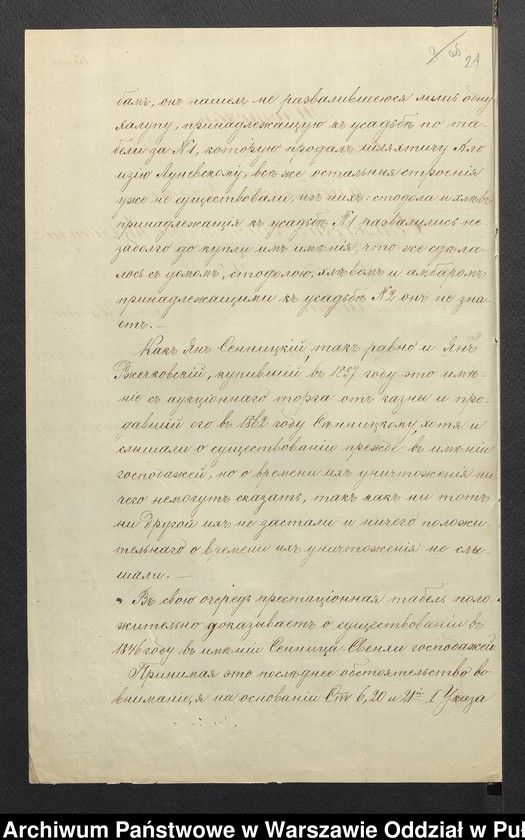 21
бамъ, онъ нашелъ не развалившеюся лишь одну
халупу, принадлежащую къ усадьбѣ по та-
бели за №1, которую продалъ шляхтичу Ало
изію Луневскому, всѣ же остальныя строенія
уже не существовали, изъ нихъ: стодола и хлѣвъ
принадлежащія къ усадьбѣ №1 развалились не
задолго до купли имъ имѣнія, что же сдѣла-
лось съ домомъ, стодолою, хлѣвомъ и амбаромъ
принадлежащими къ усадьбѣ №2 онъ не зна-
етъ. —
Какъ Янъ Сенницкій, такъ равно и Янъ
Ржечковскій, купившій въ 1857 году это имѣ-
ніе съ аукціоннаго торга отъ казны и про-
давшій его въ 1862 году Сѣнницкому, хотя и
слышали о существованіи прежде въ имѣніи
господажей, но о времени ихъ уничтоженія ни
чего немогутъ сказать, такъ какъ ни тотъ
ни другой ихъ не застали и ничего положи-
тельнаго о времени ихъ уничтоженія не слы-
шали. —
Въ свою очередь престаціонная табель поло-
жительно доказываетъ о существованіи въ
1846 году въ имѣніи Сенница Свенхи господажей
Принимая это послѣднее обстоятельство во
вниманіе, я на основаніи Ст 6, 20 и 21й I Указа
Archiwum Państwowe w Warszawie Oddział w Puł